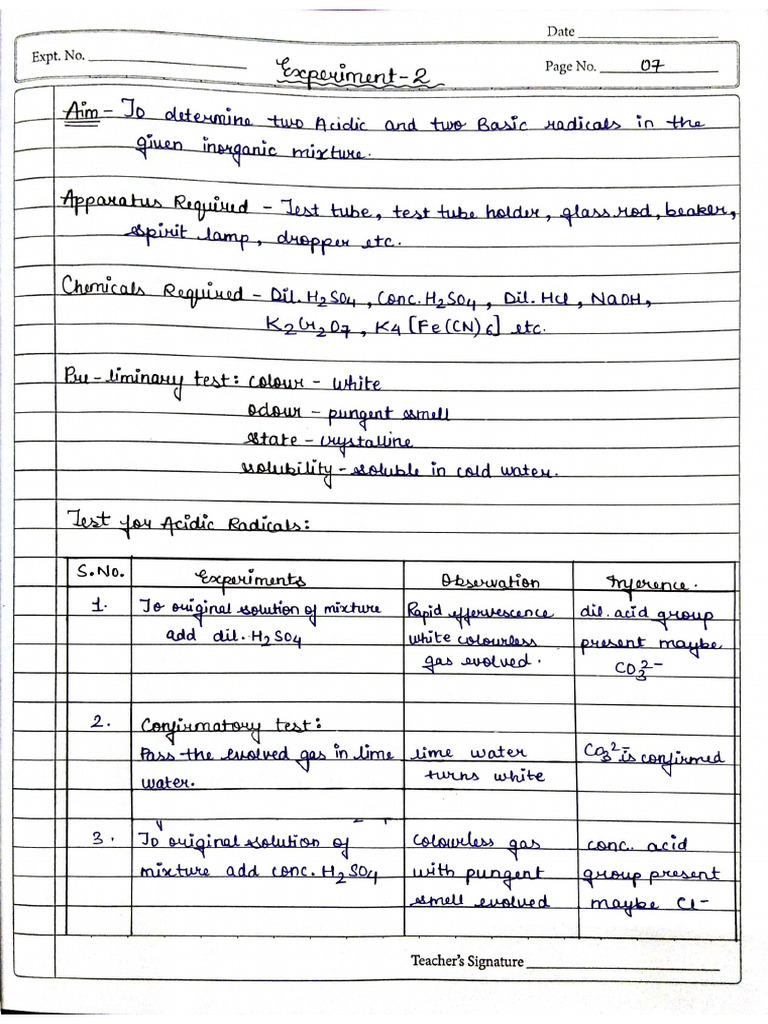 Date
Expt. No.
Experiment-2
Page No. 07
Aim - To determine two Acidic and two Basic radicals in the
given inorganic mixture.
Apparatus Required - Test tube, test tube holder, glass rod, beaker,
spirit lamp, dropper etc.
Chemicals Required - Dil. H2SO4, Conc. H2SO4, Dil. HCl, NaOH,
K2Cr2O7, K4[Fe(CN)6] etc.
Pre-liminary test: colour - white
odour - pungent smell
state - crystalline
solubility - soluble in cold water.
Test for Acidic Radicals:
S.No. Experiments Observation Inference.
1. To original solution of mixture Rapid effervescence dil. acid group
add dil. H2SO4 white colourless present maybe
gas evolved. CO3^2-
2. Confirmatory test:
Pass the evolved gas in lime lime water CO3^2- is confirmed
water. turns white
3. To original solution of colourless gas conc. acid
mixture add conc. H2SO4 with pungent group present
smell evolved maybe Cl-
Teacher's Signature